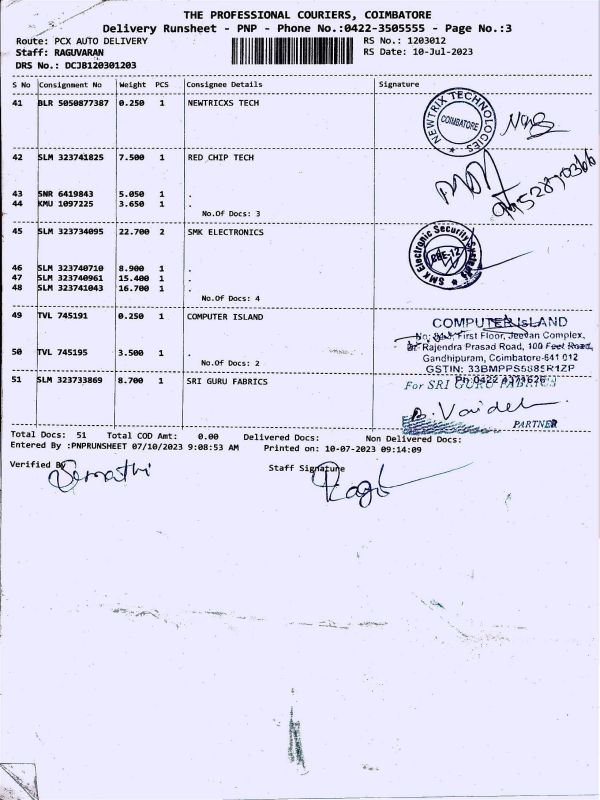 THE PROFESSIONAL COURIERS, COIMBATORE
Delivery Runsheet - PNP - Phone No.:0422-3505555 - Page No.:3
Route: PCX AUTO DELIVERY RS No.: 1203012
Staff: RAGUVARAN RS Date: 10-Jul-2023
DRS No.: DCJB120301203
S No Consignment No Weight PCS Consignee Details Signature
41 BLR 5050877387 0.250 1 NEWTRICXS TECH
NEWTRIX TECHNOLOGIES
COIMBATORE
42 SLM 323741825 7.500 1 RED CHIP TECH
43 SNR 6419843 5.050 1 .
44 KMU 1097225 3.650 1 .
No.Of Docs: 3
45 SLM 323734095 22.700 2 SMK ELECTRONICS
SMK Electronic Security Systems
CBE-12
46 SLM 323740710 8.900 1 .
47 SLM 323740961 15.400 1 .
48 SLM 323741043 16.700 1 .
No.Of Docs: 4
49 TVL 745191 0.250 1 COMPUTER ISLAND
COMPUTER ISLAND
First Floor, Jeevan Complex,
Dr. Rajendra Prasad Road, 100 Feet Road,
50 TVL 745195 3.500 1 .
Gandhipuram, Coimbatore-641 012
No.Of Docs: 2
GSTIN: 33BMPPS5885R1ZP
51 SLM 323733869 8.700 1 SRI GURU FABRICS
For SRI GURU FABRICS
PARTNER
Total Docs: 51 Total COD Amt: 0.00 Delivered Docs: Non Delivered Docs:
Entered By :PNPRUNSHEET 07/10/2023 9:08:53 AM Printed on: 10-07-2023 09:14:09
Verified By Staff Signature